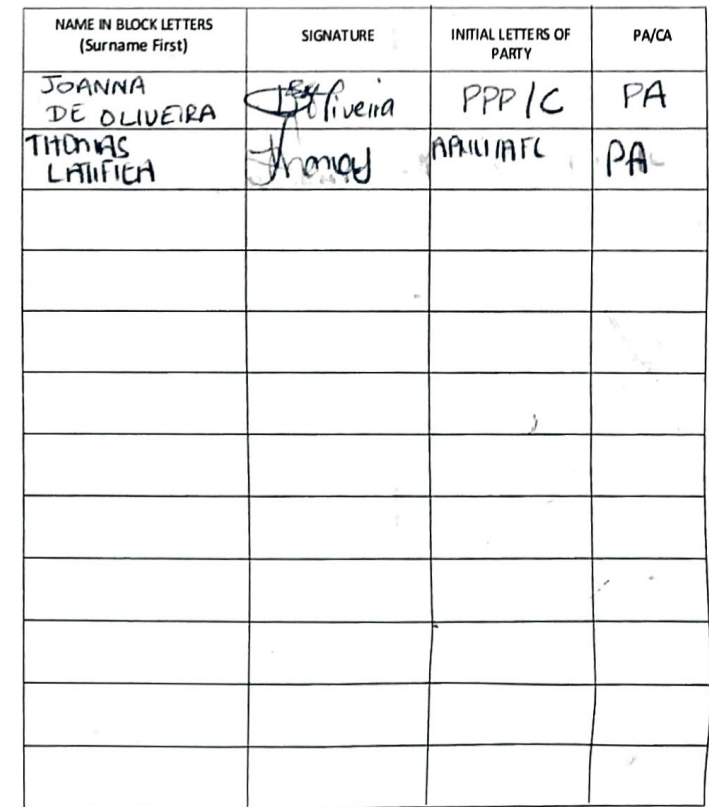 NAME IN BLOCK LETTERS
(Surname First)
SIGNATURE
INITIAL LETTERS OF
PARTY
PA/CA
JOANNA
DE OLIVEIRA
Oliveira
PPP/C
PA
THOMAS
LATIFICA
Thomas
PA